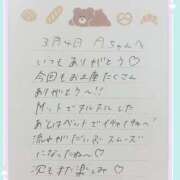 3月4日 Aちゃんへ
いつもありがとう♡
今回もお土産たくさん
ありがとう〜!!
Mットでヌルヌルした
あとはベットでイチャイチャ〜♡
流れがだいぶスムーズ
になったね〜♡
次もまた楽しみ♡